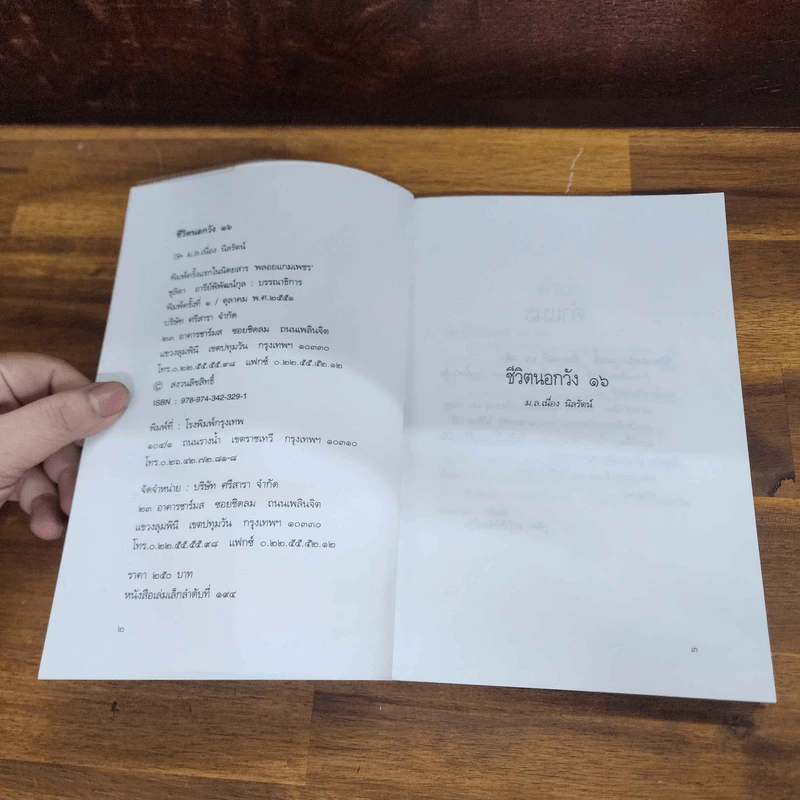 ชีวิตนอกวัง ๑๖
ม.ล.เนื่อง นิลรัตน์
พิมพ์ครั้งแรกในนิตยสาร 'พลอยแกมเพชร'
ชุลิตา อารีย์พิพัฒน์กุล : บรรณาธิการ
พิมพ์ครั้งที่ ๑ / ตุลาคม พ.ศ.๒๕๕๑
บริษัท ศรีสารา จำกัด
๒๓ อาคารชาร์มส ซอยชิดลม ถนนเพลินจิต
แขวงลุมพินี เขตปทุมวัน กรุงเทพฯ ๑๐๓๓๐
โทร.๐.๒๒.๕๕.๕๕.๙๘ แฟกซ์ ๐.๒๒.๕๕.๕๒.๑๒
© สงวนลิขสิทธิ์
ISBN : 978-974-342-329-1
พิมพ์ที่ : โรงพิมพ์กรุงเทพ
๑๐๔/๑ ถนนรางน้ำ เขตราชเทวี กรุงเทพฯ ๑๐๓๑๐
โทร.๐.๒๖.๔๒.๗๒.๘๑-๘
จัดจำหน่าย : บริษัท ศรีสารา จำกัด
๒๓ อาคารชาร์มส ซอยชิดลม ถนนเพลินจิต
แขวงลุมพินี เขตปทุมวัน กรุงเทพฯ ๑๐๓๓๐
โทร.๐.๒๒.๕๕.๕๕.๙๘ แฟกซ์ ๐.๒๒.๕๕.๕๒.๑๒
ราคา ๒๕๐ บาท
หนังสือเล่มเล็กลำดับที่ ๑๙๔
๒
ชีวิตนอกวัง ๑๖
ม.ล.เนื่อง นิลรัตน์
๓